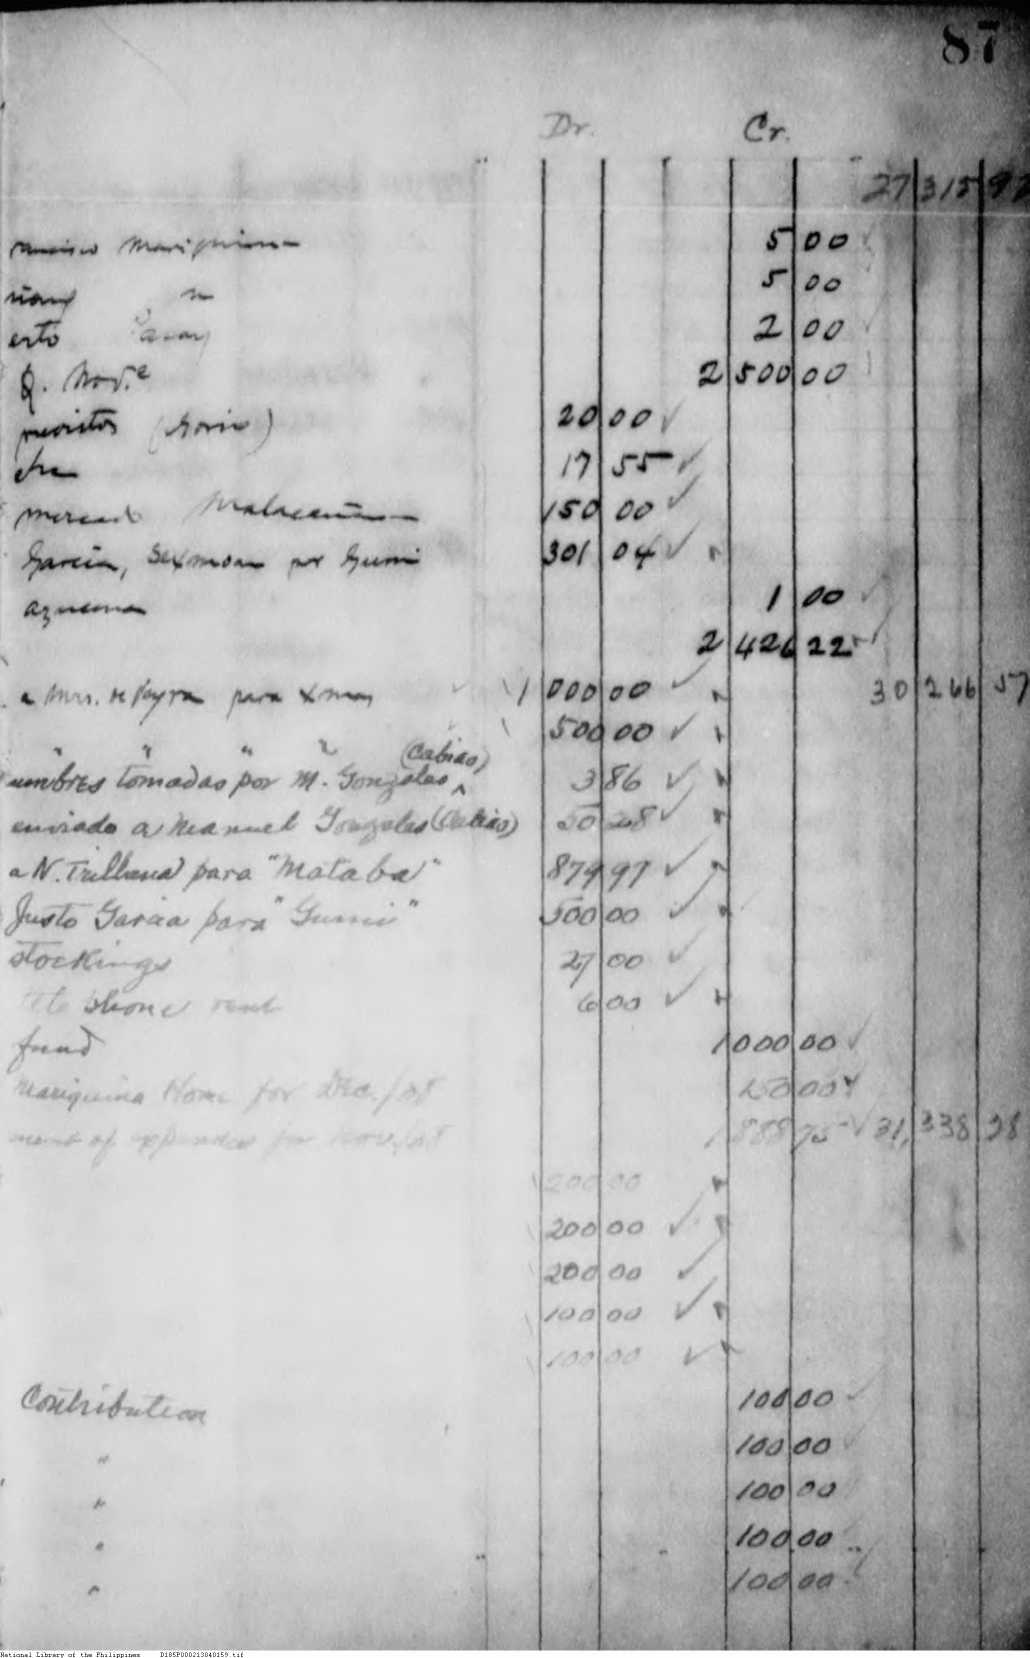 87
Dr. Cr.
27 315 92
5 00
5 00
erto 2 00
Q. Nov.e 2 500 00
20 00 ✓
17 55 ✓
mercado Malacañan 150 00 ✓
Garcia, Sexmoan por Gumi 301 04 ✓
azucena 1 00
2 426 22
a Mrs. de Veyra para Xmas 1 000 00 ✓ 30 266 57
" " " " 500 00 ✓
(Cabiao)
umbres tomadas por M. Gonzales 3 86 ✓
enviado a Manuel Gonzales (Cabiao) 50 28 ✓
a N. Trillana para "Mataba" 879 97 ✓
Justo Garcia para "Gumi" 500 00 ✓
stockings 27 00 ✓
phone rent 6 00 ✓
fund 1 000 00 ✓
Mariquina Home for Dec./08 250 00
ment of for Nov./08 1 888 75 ✓ 31, 338 28
200 00
200 00 ✓
200 00 ✓
100 00 ✓
100 00 ✓
Contribution 100 00 ✓
" 100 00
" 100 00
" 100 00
" 100 00
National Library of the Philippines D185P000213040159.tif